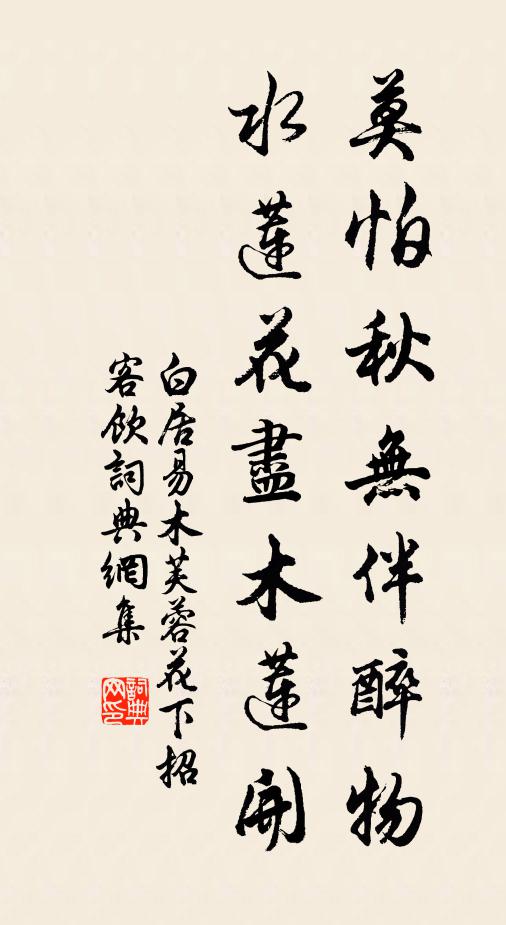 莫怕秋無伴醉物
水蓮花盡木蓮開
白居易木芙蓉花下招
客飲詞典網集
詞典
网印